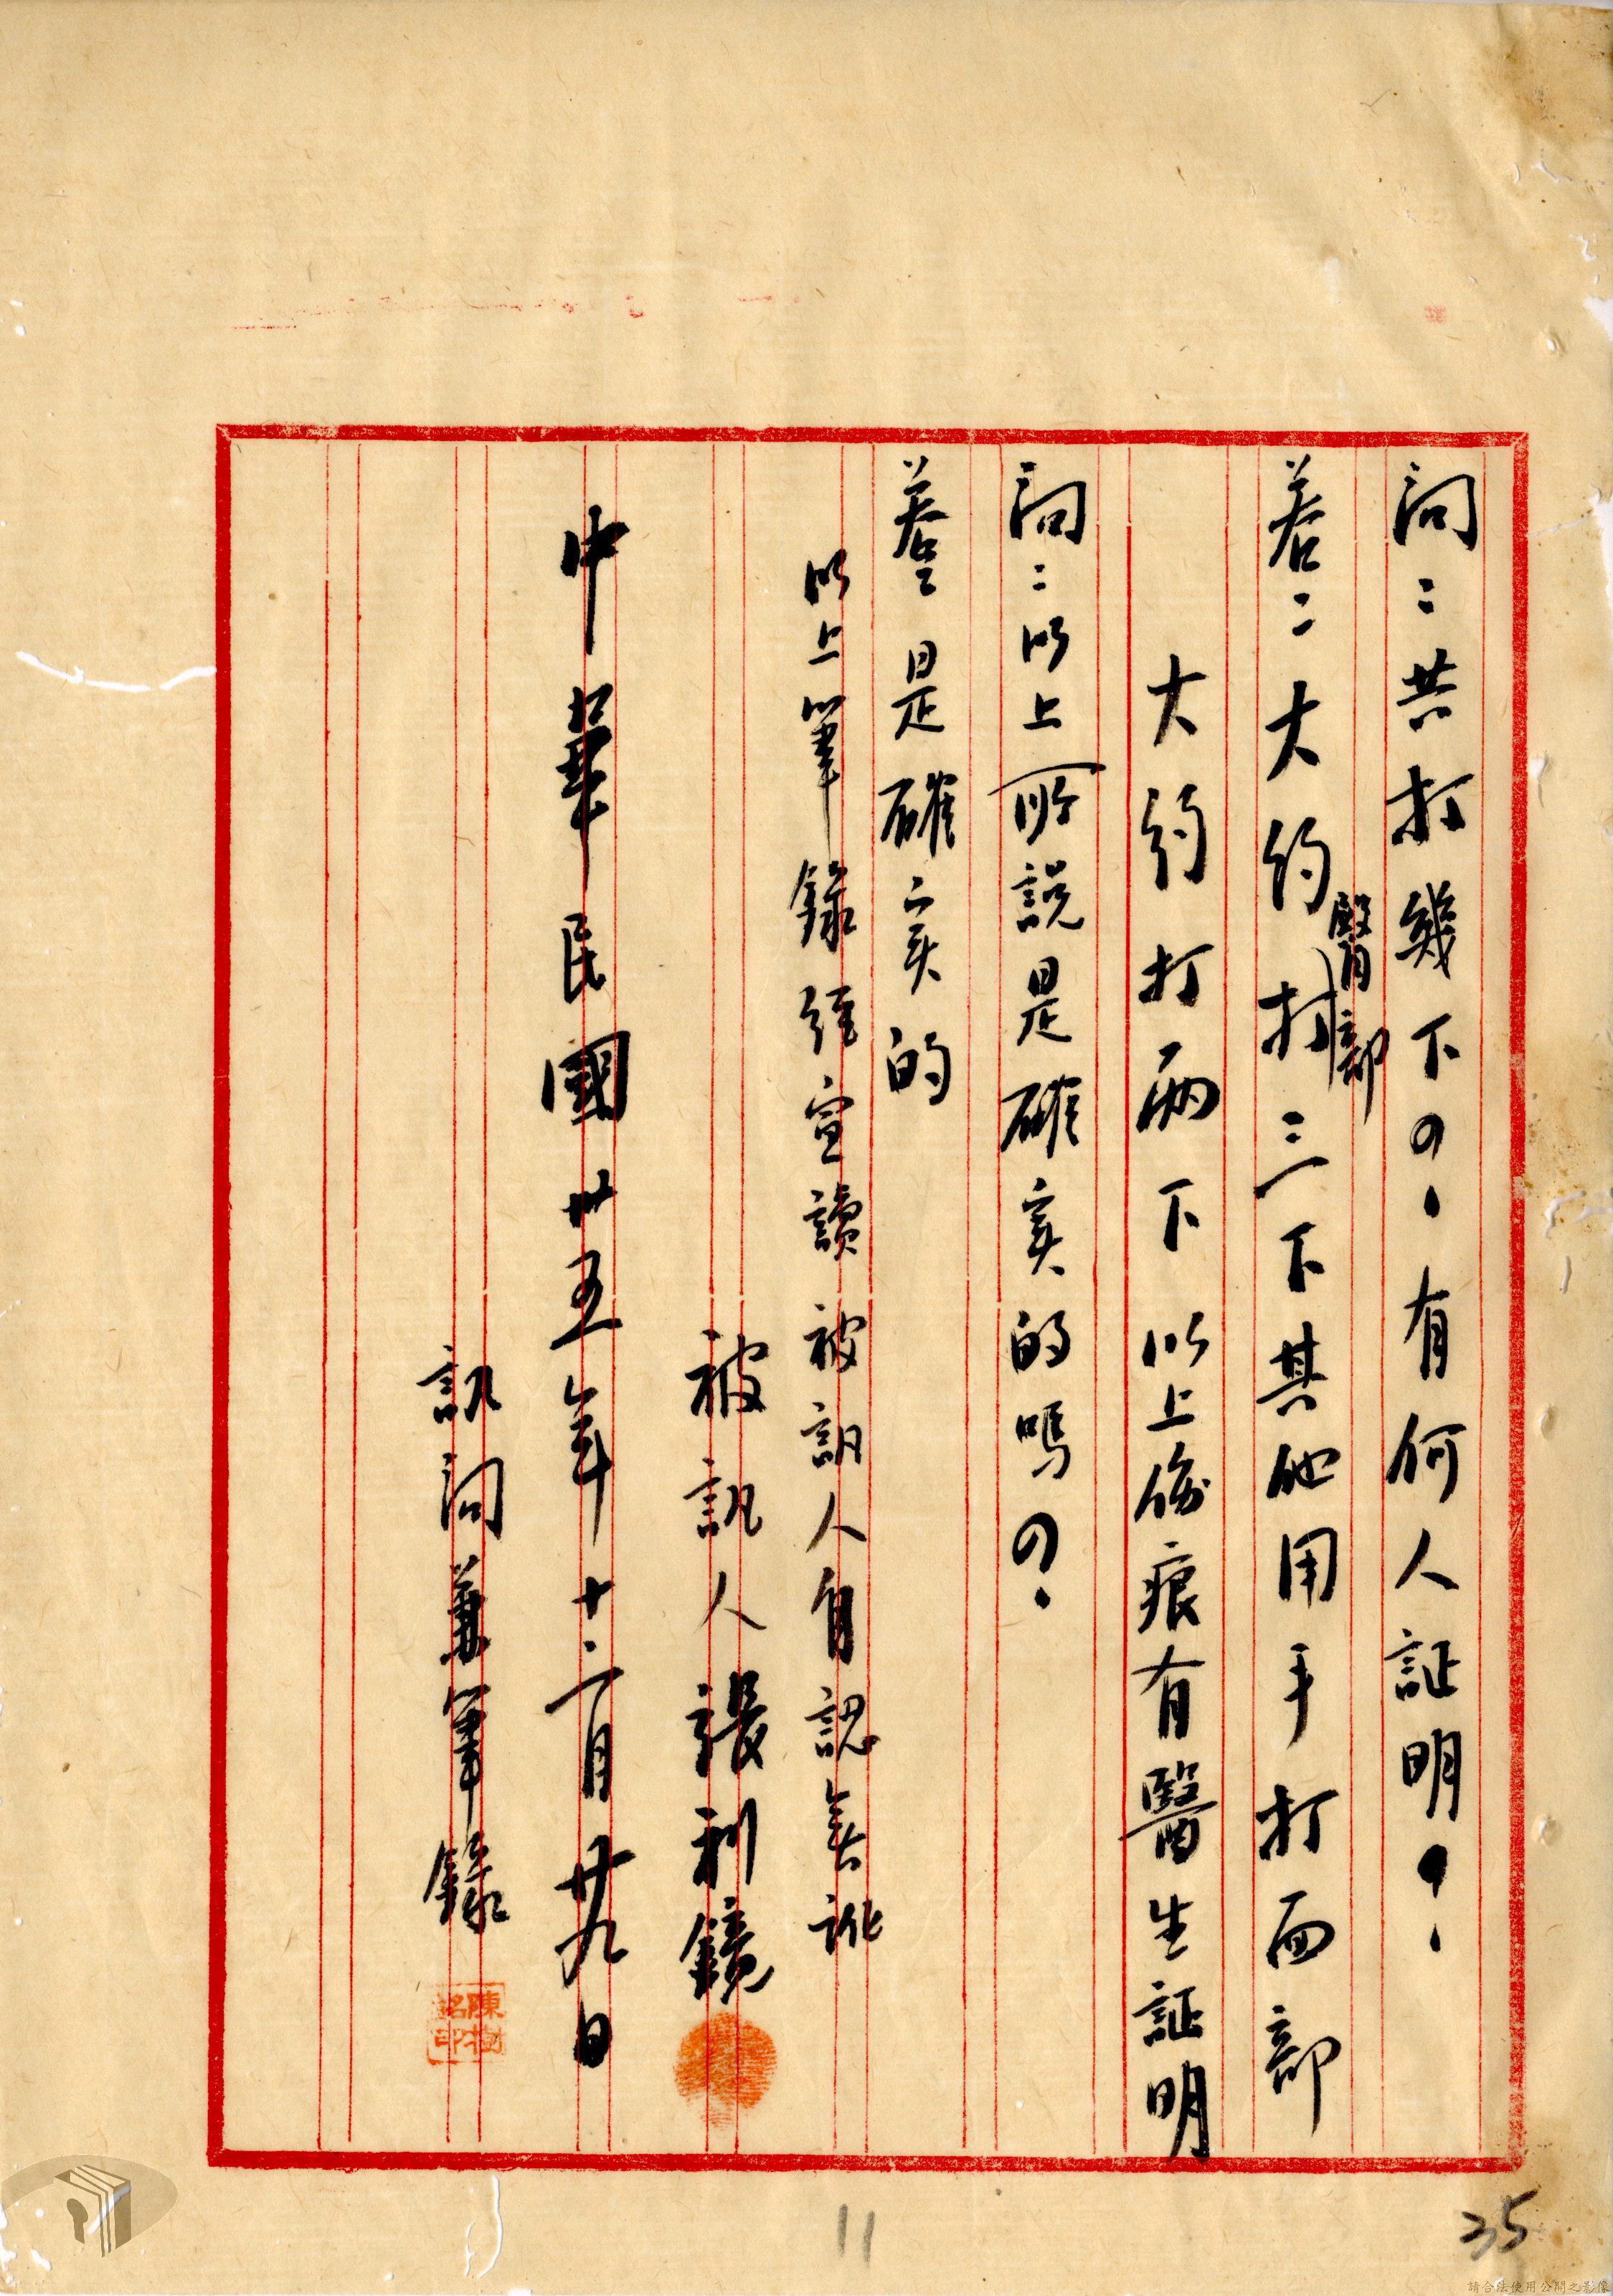 問：共打幾下？有何人証明？
答：大約打臀部三下其他用手打面部
大約打兩下以上傷痕有醫生証明
問：以上所説是確实的嗎？
答：是確实的
以上筆錄經宣讀被訊人自認無訛
被訊人張利鏡
中華民國卅五年十二月廿九日
訊問兼筆錄
35
11
請合法使用公開之影像